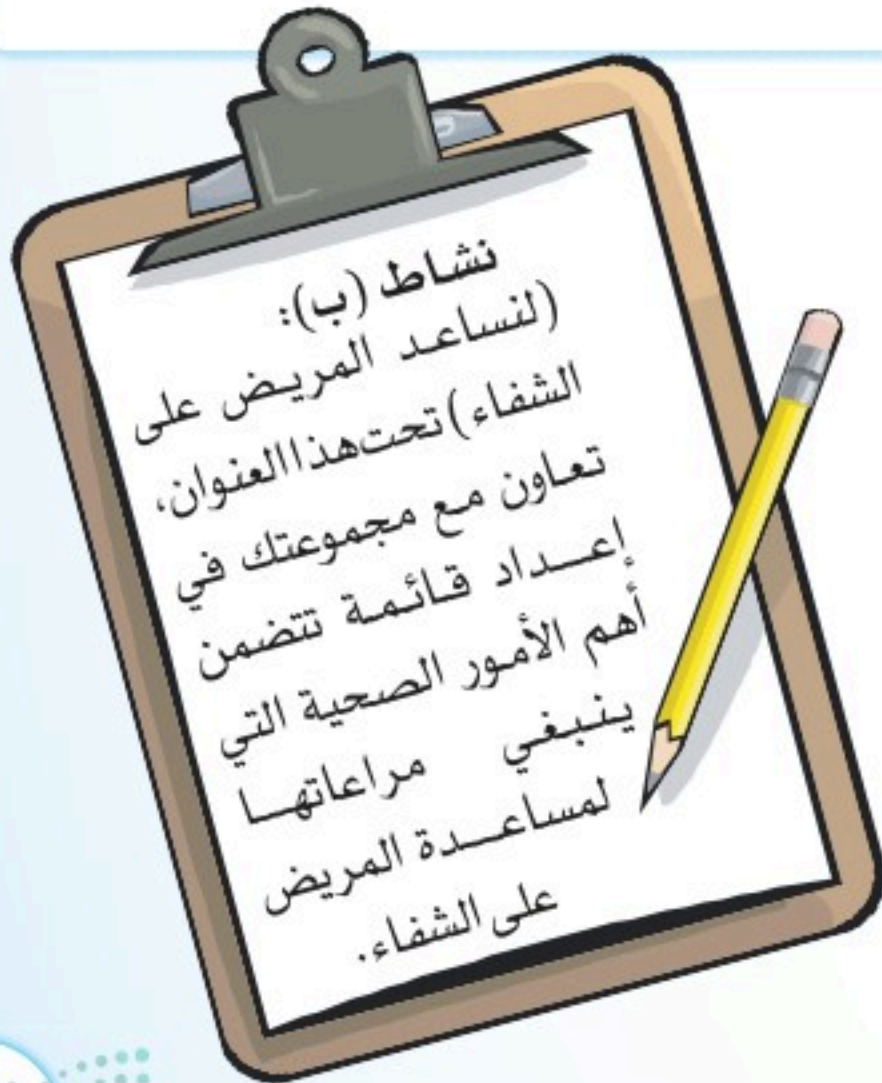 نشاط (ب):
(لنساعد المريض على
الشفاء) تحت هذا العنوان،
تعاون مع مجموعتك في
إعداد قائمة تتضمن
أهم الأمور الصحية التي
ينبغي مراعاتها
لمساعدة المريض
على الشفاء.